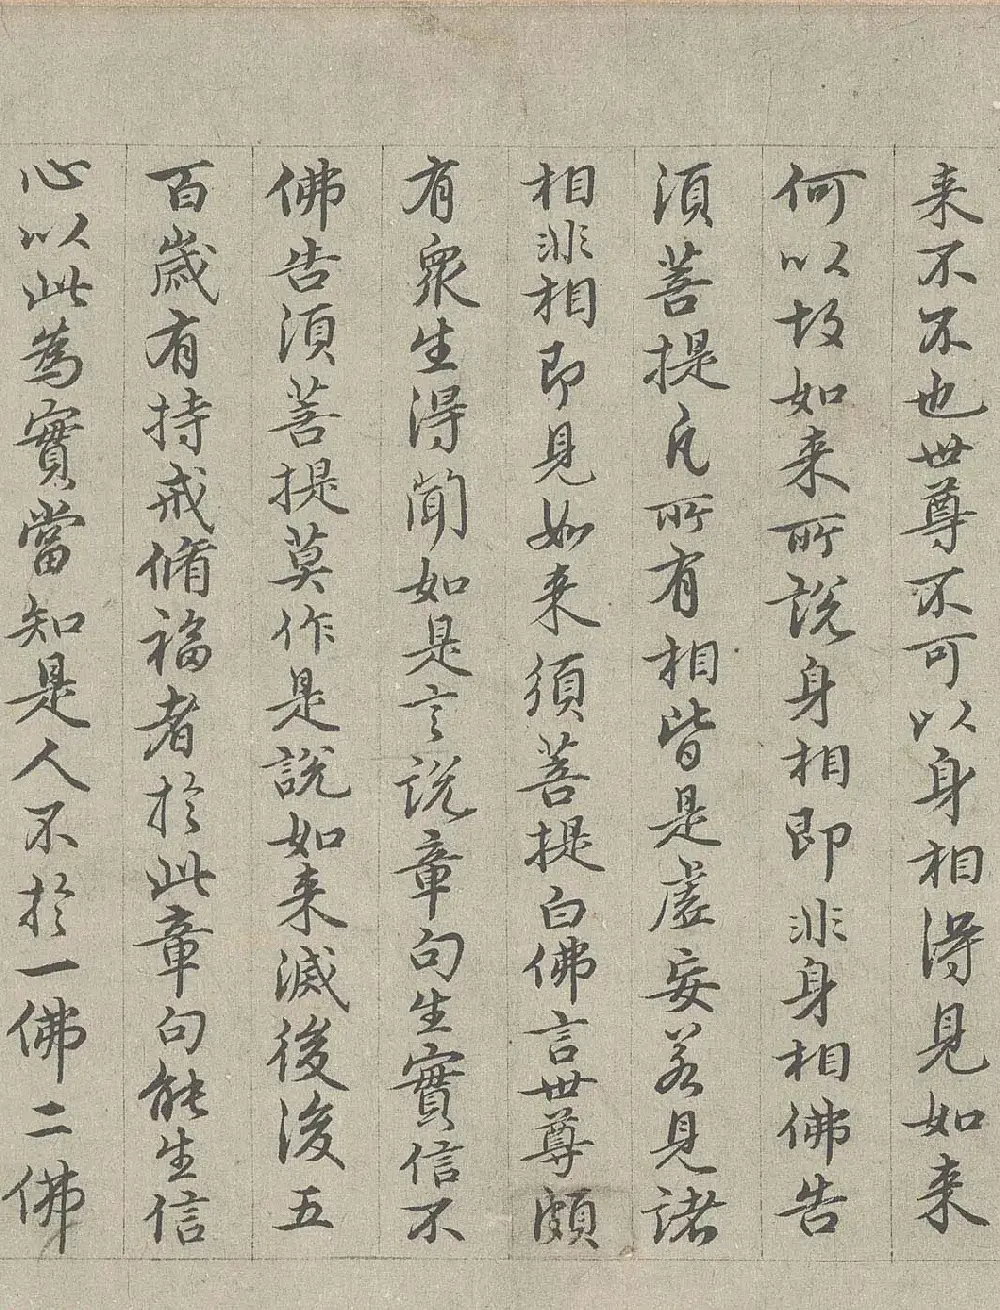 来不不也世尊不可以身相得見如来
何以故如来所説身相即非身相佛告
須菩提凡所有相皆是虛妄若見諸
相非相即見如来須菩提白佛言世尊頗
有衆生得聞如是言説章句生實信不
佛告須菩提莫作是説如来滅後後五
百歲有持戒脩福者於此章句能生信
心以此為實當知是人不於一佛二佛